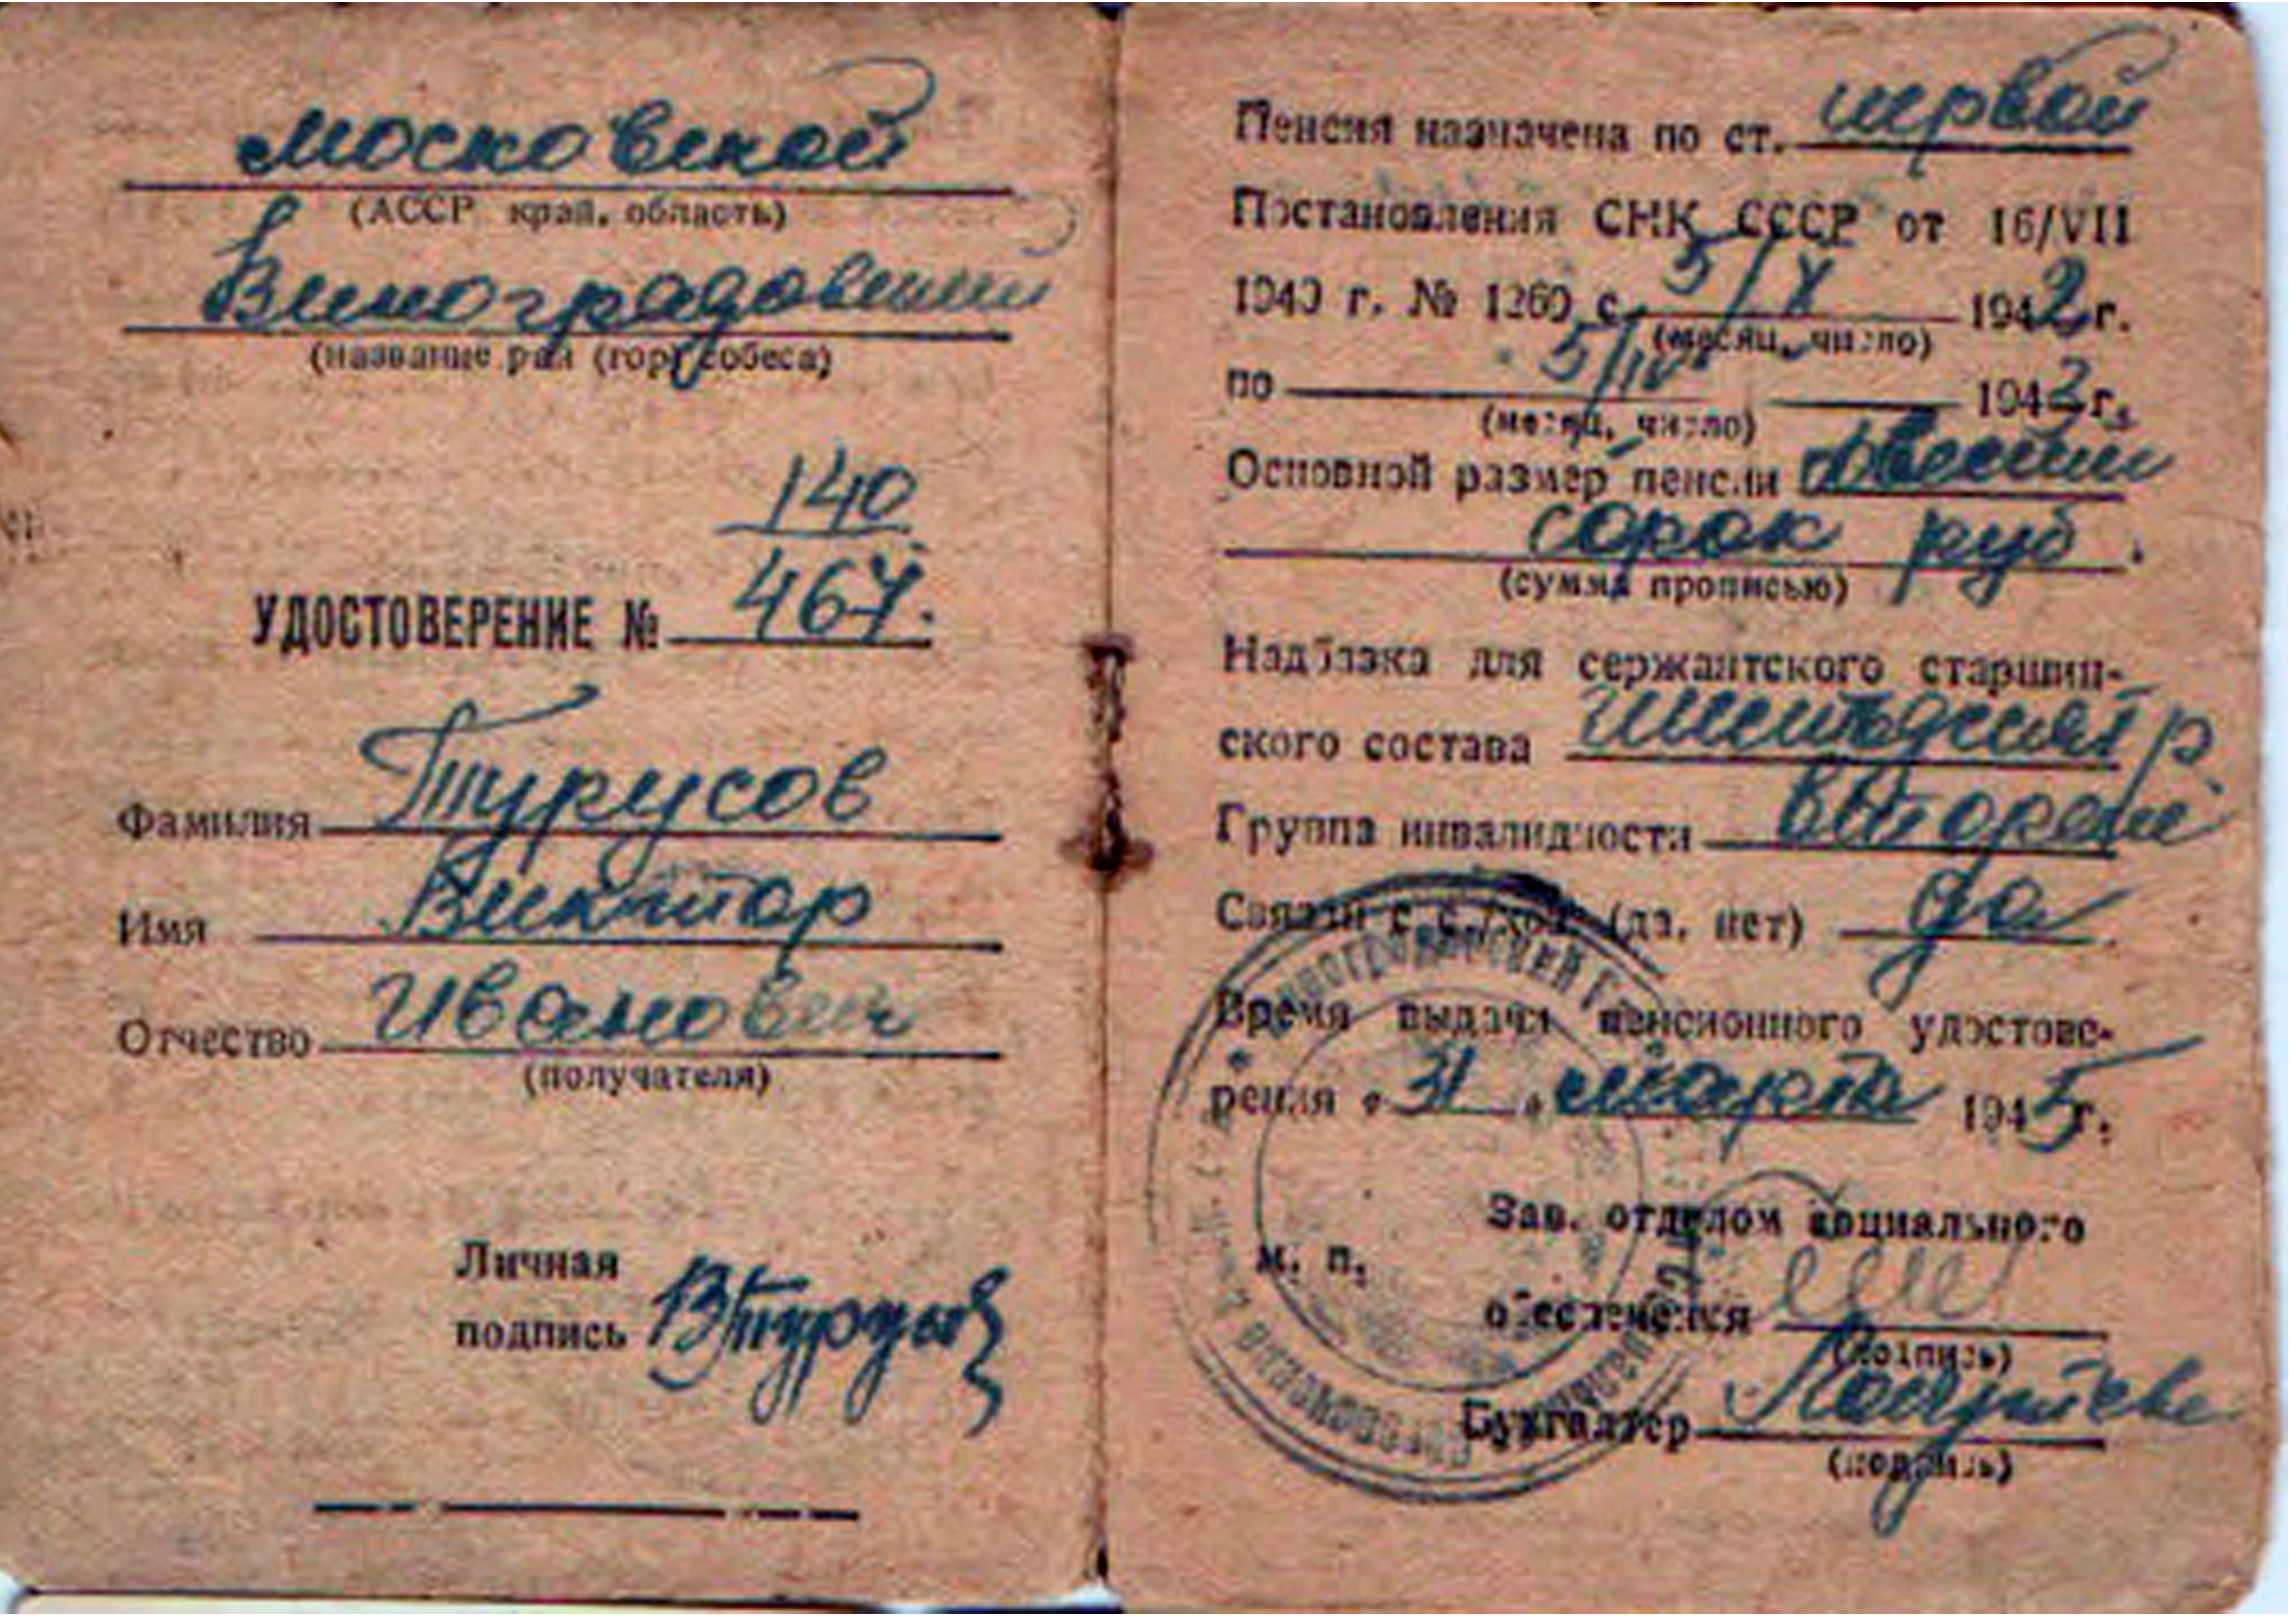 Московской
(АССР край, область)
Виноградовский
(название рай (гор) собеса)
140
УДОСТОВЕРЕНИЕ № 467.
Фамилия Турусов
Имя Виктор
Отчество Иванович
(получателя)
Личная
подпись ВТурусов
Пенсия назначена по ст. первой
Постановления СНК СССР от 16/VII
1940 г. № 1269 с 5/X 1942 г.
(месяц, число)
по 5/IV 1943 г.
(месяц, число)
Основной размер пенсии двести
сорок руб.
(сумма прописью)
Надбавка для сержантского старшин-
ского состава шестьдесят р.
Группа инвалидности второй
Связан с с./хоз. (да, нет) да
Время выдачи пенсионного удостове-
рения «31» марта 1945 г.
Зав. отделом социального
м. п.
обеспечения
(подпись)
Бухгалтер
(подпись)